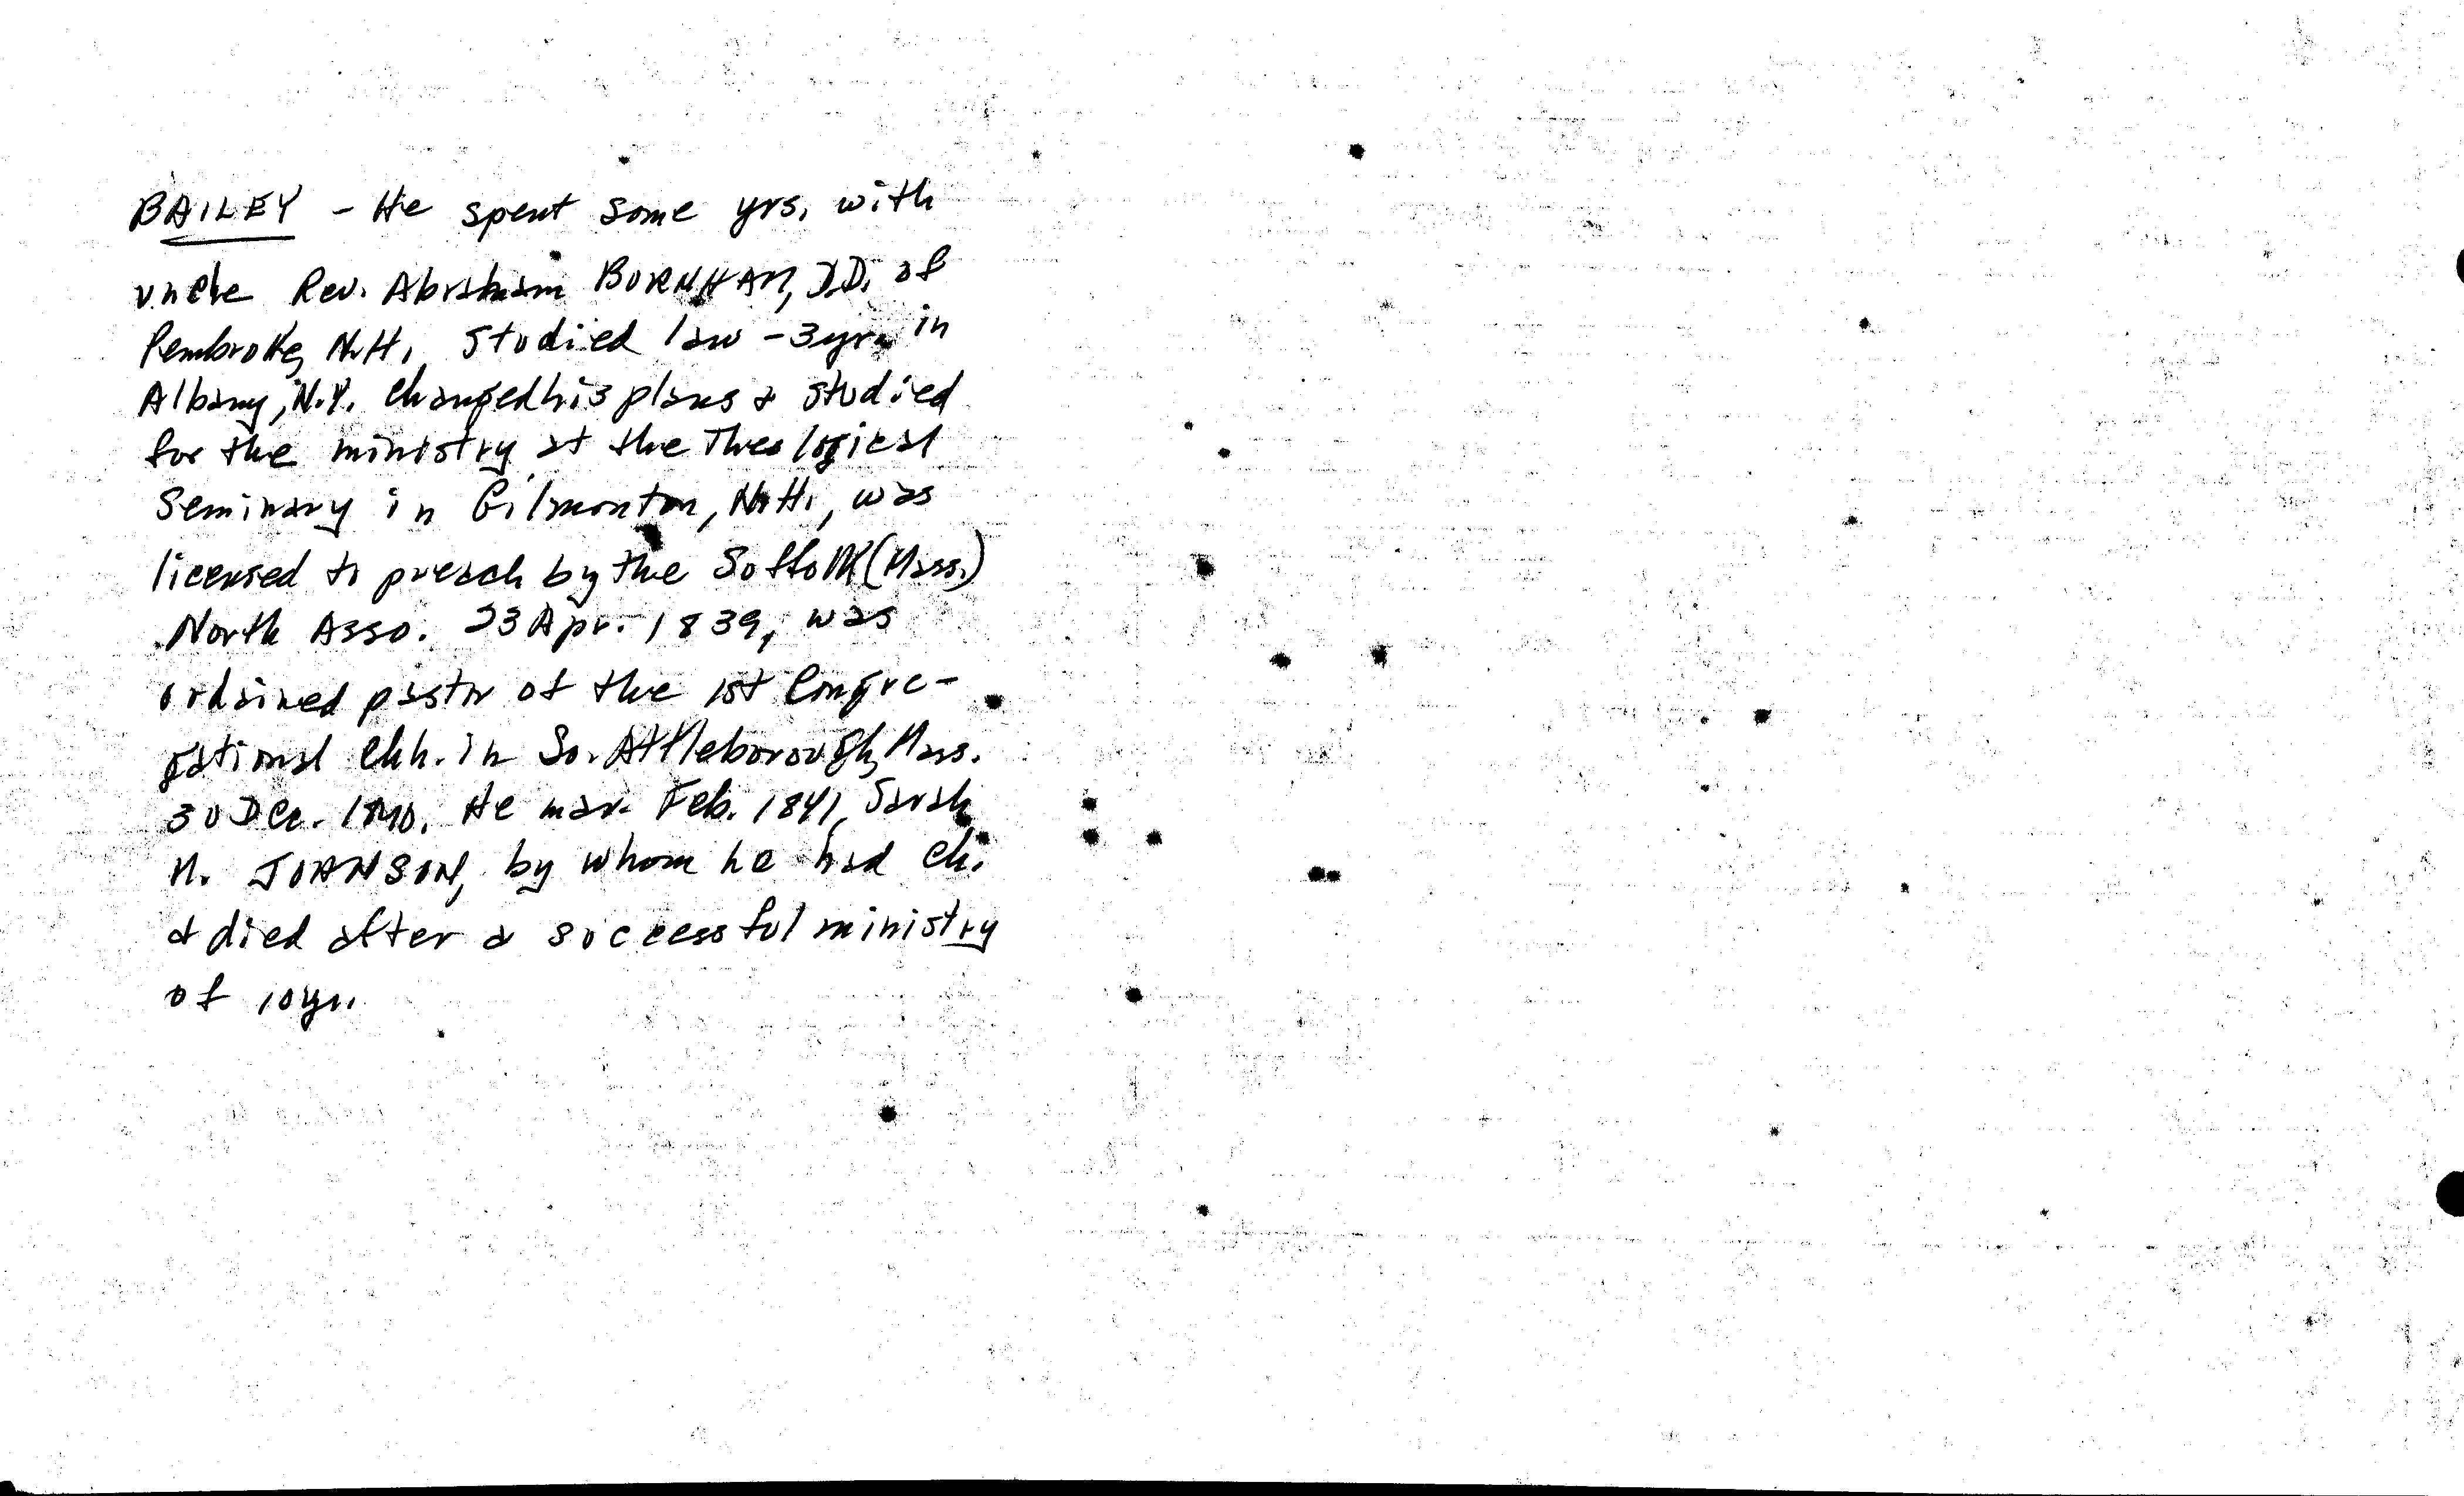 BAILEY - He spent some yrs. with
uncle Rev. Abraham BURNHAM, D.D. of
Pembroke, N.H. Studied law - 3 yrs. in
Albany, N.Y. Changed his plans & studied
for the ministry at the Theological
Seminary in Gilmonton, N.H., was
licensed to preach by the Suffolk (Mass.)
North Asso. 23 Apr. 1839, was
ordained pastor of the 1st Congre-
gational Chh. in So. Attleborough, Mass.
30 Dec. 1840. He mar. Feb. 1841, Sarah
M. JOHNSON, by whom he had ch.
& died after a successful ministry
of 10 yrs.